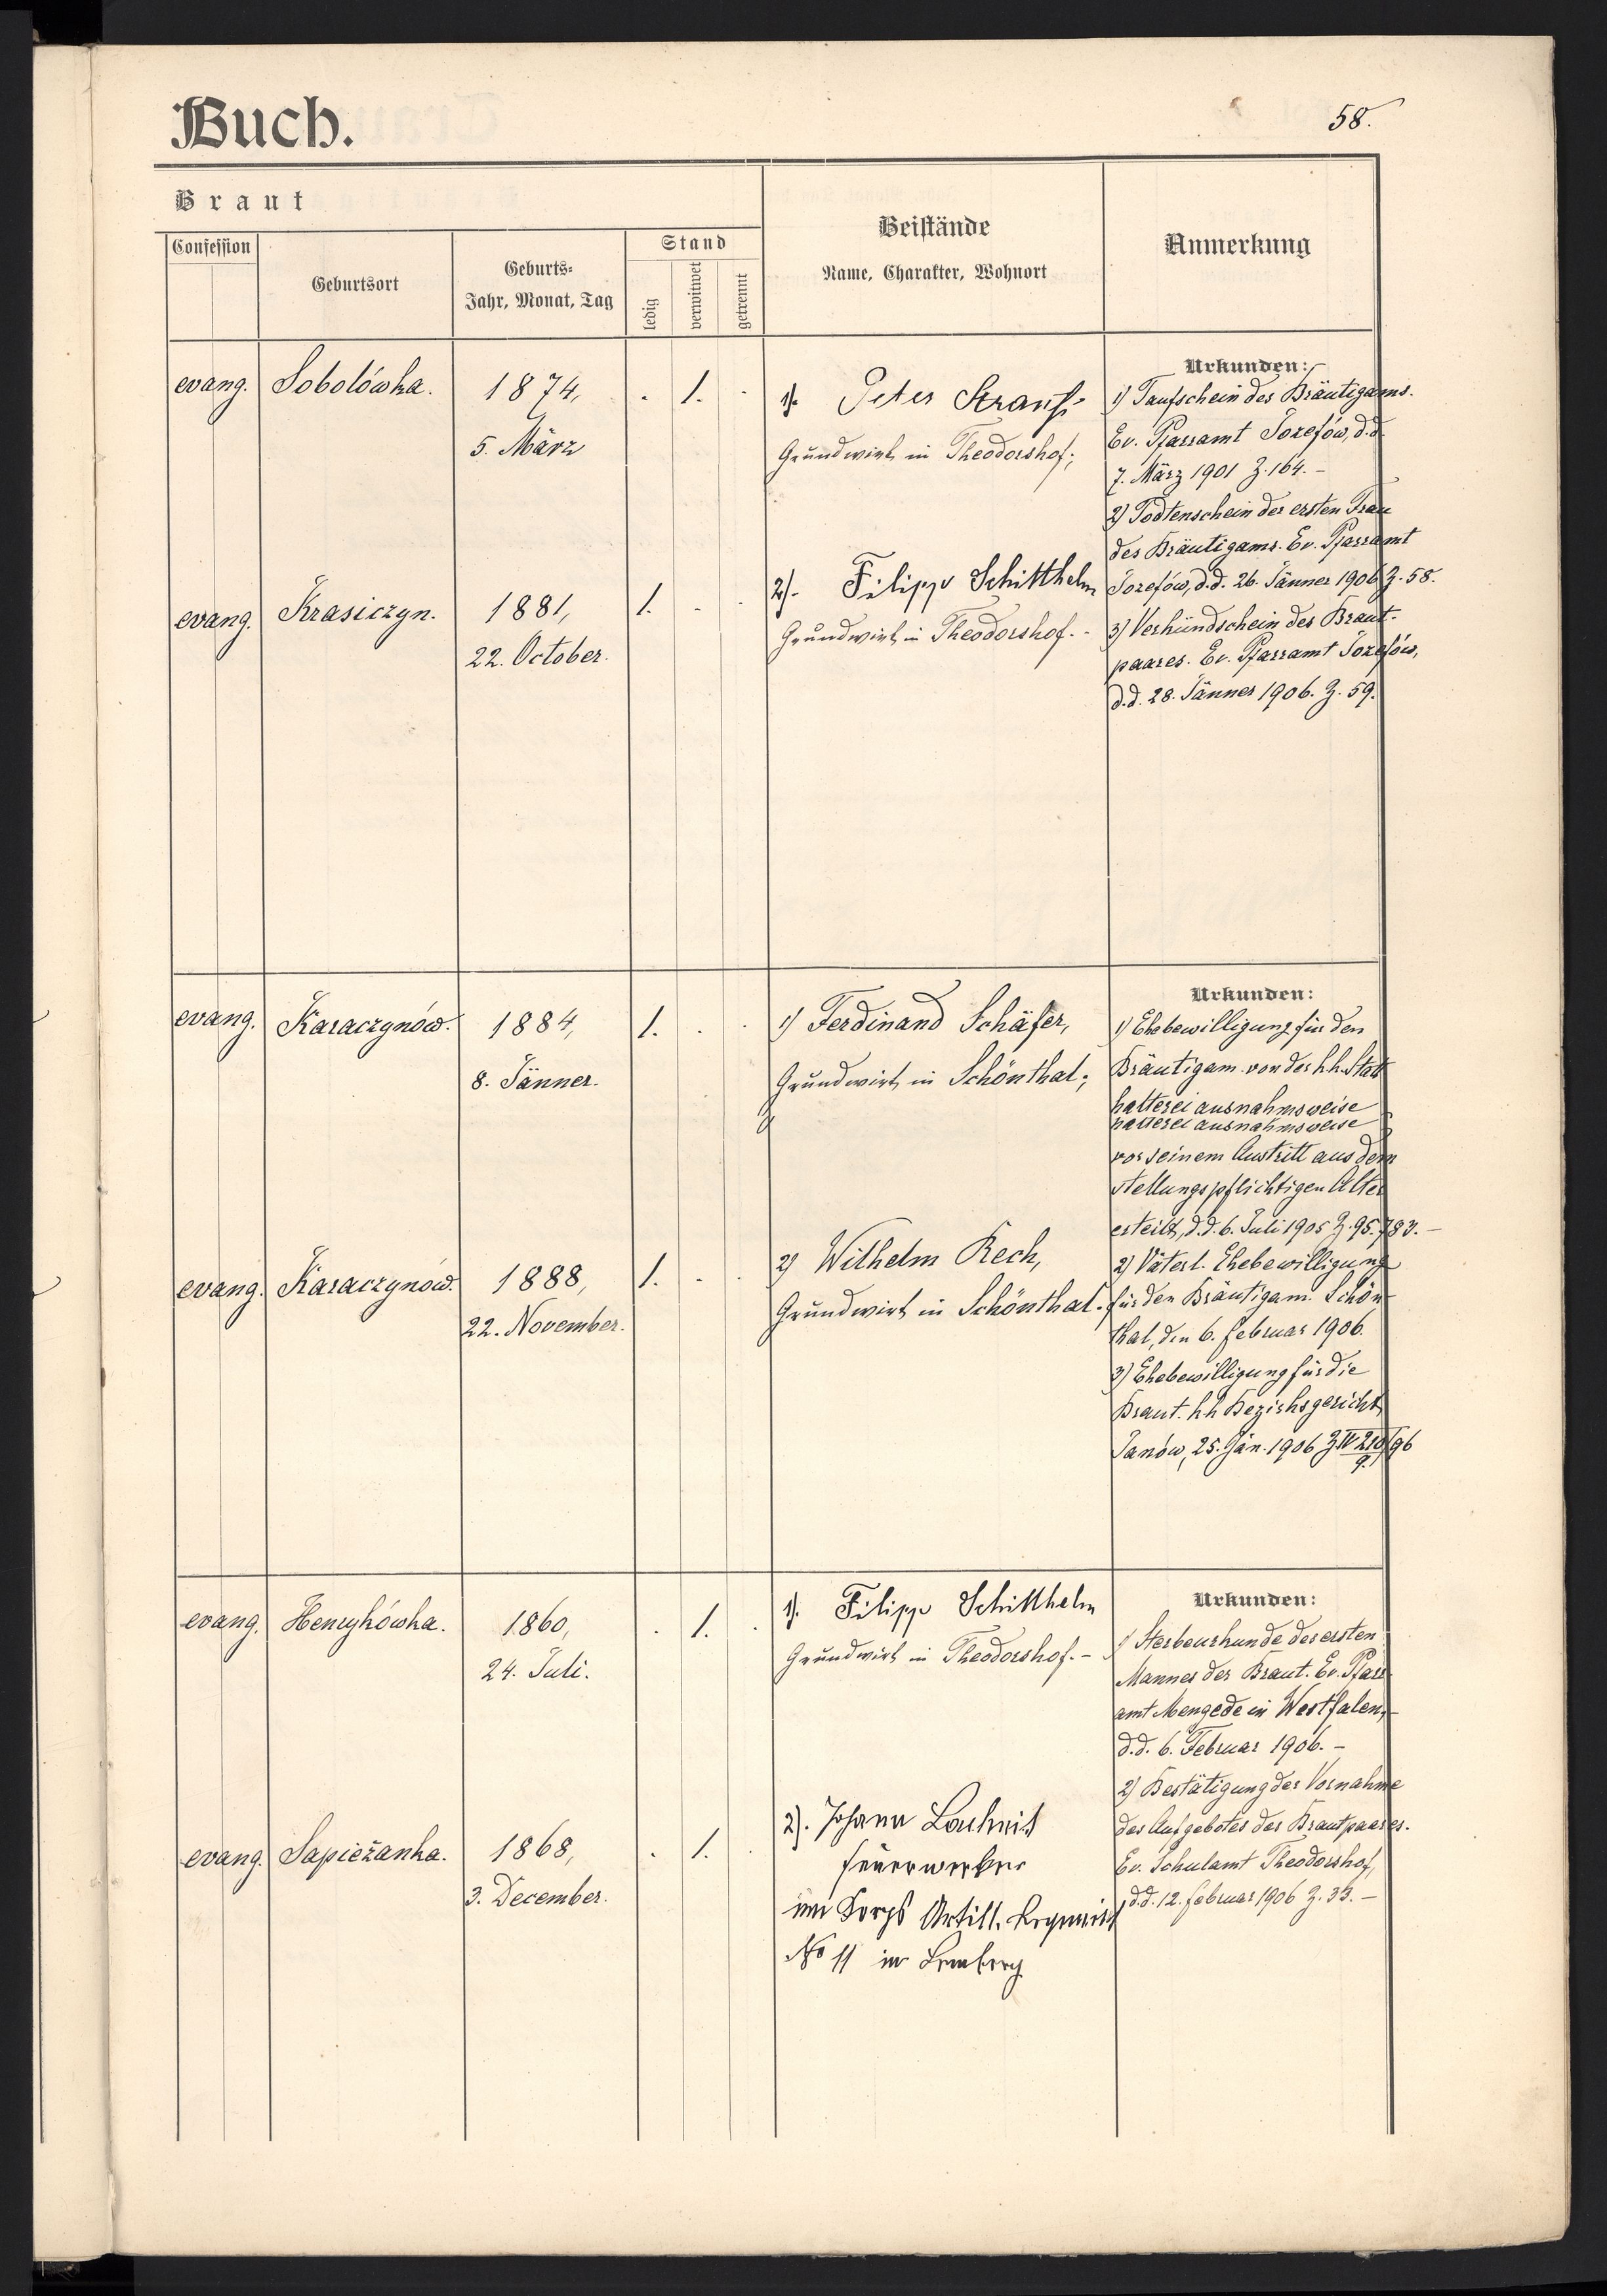 Buch.
58.
Braut
Confession
Geburtsort
Geburts-
Jahr, Monat, Tag
Stand
ledig
verwitwet
getrennt
Beistände
Name, Charakter, Wohnort
Anmerkung
evang.
Sobolówka.
1874,
5. März
. 1. .
1). Peter Strauß
Grundwirt in Theodorshof;
Urkunden:
1) Taufschein des Bräutigams.
Ev. Pfarramt Jozefów, d.d.
7. März 1901 Z. 164. –
2) Todtenschein der ersten Frau
des Bräutigams. Ev. Pfarramt
Jozefów, d.d. 26. Jänner 1906 Z. 58.
3) Verkündschein des Braut-
paares. Ev. Pfarramt Jozefów,
d.d. 28. Jänner 1906. Z. 59.
evang.
Krasiczyn.
1881,
22. October.
1. . .
2). Filipp Schitthelm
Grundwirt in Theodorshof. -
evang.
Karaczynów.
1884,
8. Jänner.
1. . .
1) Ferdinand Schäfer,
Grundwirt in Schönthal;
Urkunden:
1) Ehebewilligung für den
Bräutigam von der k.k. Stat
halterei ausnahmsweise
halterei ausnahmsweise
vor seinem Austritt aus dem
stellungspflichtigen Alter
erteilt, d.d. 6. Juli 1905 Z. 95.783. –
2) Väterl. Ehebewilligung
für den Bräutigam. Schön-
thal, den 6. Februar 1906.
3) Ehebewilligung für die
Braut. k.k. Bezirksgericht
Janów, 25. Jän. 1906 Z IV 210/96
9.
evang.
Karaczynów.
1888,
22. November.
1. . .
2) Wilhelm Rech,
Grundwirt in Schönthal.
evang.
Henrykówka.
1860,
24. Juli.
. 1. .
1). Filipp Schitthelm
Grundwirt in Theodorshof. –
Urkunden:
1) Sterbeurkunde des ersten
Mannes der Braut. Ev. Pfarr-
amt Mengede in Westfalen,
d.d. 6. Februar 1906. –
2) Bestätigung der Vornahme
des Aufgebotes des Brautpaares.
Ev. Schulamt Theodorshof,
d.d. 12. Februar 1906 Z. 33. –
evang.
Sapieżanka.
1868,
3. December.
. 1. .
2). Johann
Feuerwerker
im Korps Artill. Regiment
No 11 in Lemberg